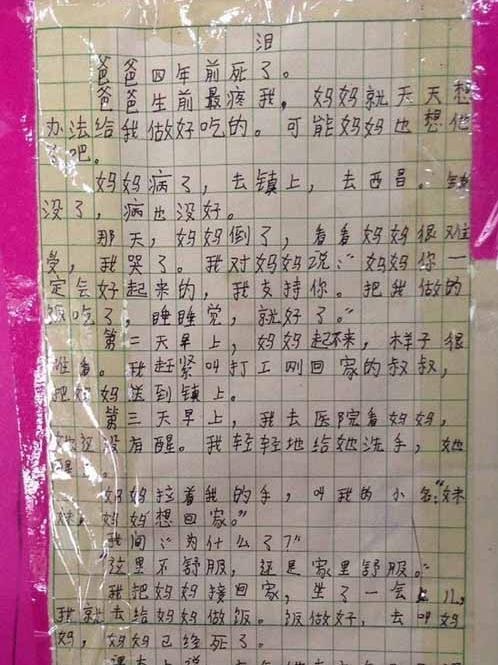 泪
爸爸四年前死了。
爸爸生前最疼我，妈妈就天天想
办法给我做好吃的。可能妈妈也想他
了吧。
妈妈病了，去镇上，去西昌。钱
没了，病也没好。
那天，妈妈倒了，看看妈妈很难
受，我哭了。我对妈妈说：“妈妈你一
定会好起来的，我支持你。把我做的
饭吃了，睡睡觉，就好了。”
第二天早上，妈妈起不来，样子很
难看。我赶紧叫打工刚回家的叔叔，
把妈妈送到镇上。
第三天早上，我去医院看妈妈，
她还没有醒。我轻轻地给她洗手，她
醒了。
妈妈拉着我的手，叫我的小名：“妹
妹，妈妈想回家。”
我问：“为什么了？”
“这里不舒服，还是家里舒服。”
我把妈妈接回家，坐了一会儿，
我就去给妈妈做饭。饭做好，去叫妈
妈，妈妈已经死了。
课本上说